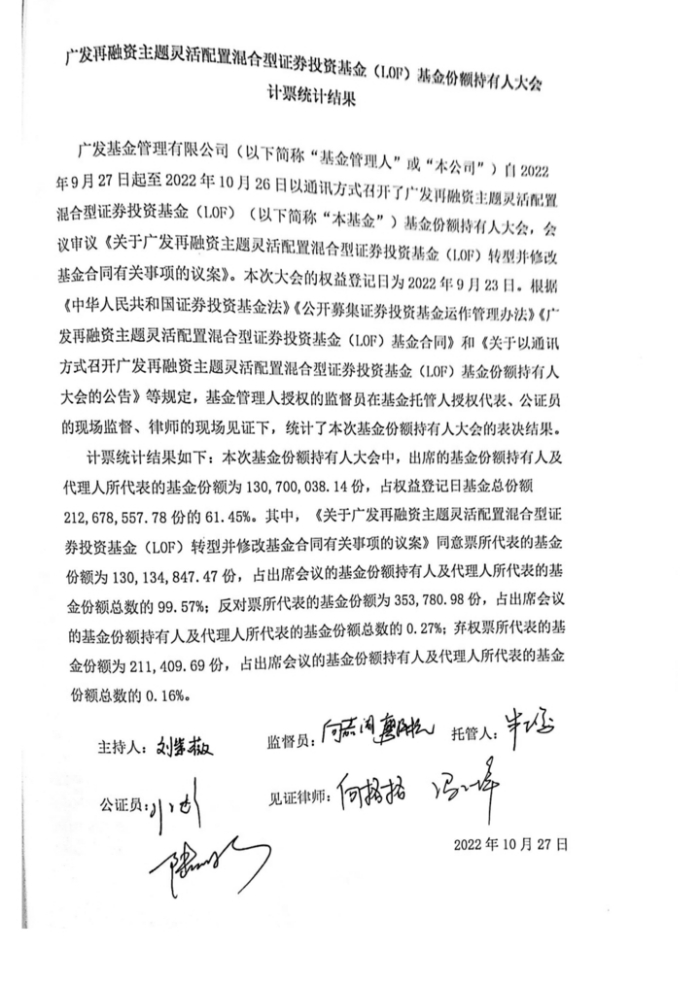 广发再融资主题灵活配置混合型证券投资基金（LOF）基金份额持有人大会
计票统计结果
广发基金管理有限公司（以下简称“基金管理人”或“本公司”）自 2022
年 9 月 27 日起至 2022 年 10 月 26 日以通讯方式召开了广发再融资主题灵活配置
混合型证券投资基金（LOF）（以下简称“本基金”）基金份额持有人大会，会
议审议《关于广发再融资主题灵活配置混合型证券投资基金（LOF）转型并修改
基金合同有关事项的议案》。本次大会的权益登记日为 2022 年 9 月 23 日。根据
《中华人民共和国证券投资基金法》《公开募集证券投资基金运作管理办法》《广
发再融资主题灵活配置混合型证券投资基金（LOF）基金合同》和《关于以通讯
方式召开广发再融资主题灵活配置混合型证券投资基金（LOF）基金份额持有人
大会的公告》等规定，基金管理人授权的监督员在基金托管人授权代表、公证员
的现场监督、律师的现场见证下，统计了本次基金份额持有人大会的表决结果。
计票统计结果如下：本次基金份额持有人大会中，出席的基金份额持有人及
代理人所代表的基金份额为 130,700,038.14 份，占权益登记日基金总份额
212,678,557.78 份的 61.45%。其中，《关于广发再融资主题灵活配置混合型证
券投资基金（LOF）转型并修改基金合同有关事项的议案》同意票所代表的基金
份额为 130,134,847.47 份，占出席会议的基金份额持有人及代理人所代表的基
金份额总数的 99.57%；反对票所代表的基金份额为 353,780.98 份，占出席会议
的基金份额持有人及代理人所代表的基金份额总数的 0.27%；弃权票所代表的基
金份额为 211,409.69 份，占出席会议的基金份额持有人及代理人所代表的基金
份额总数的 0.16%。
主持人： 监督员： 托管人：
公证员： 见证律师：
2022 年 10 月 27 日